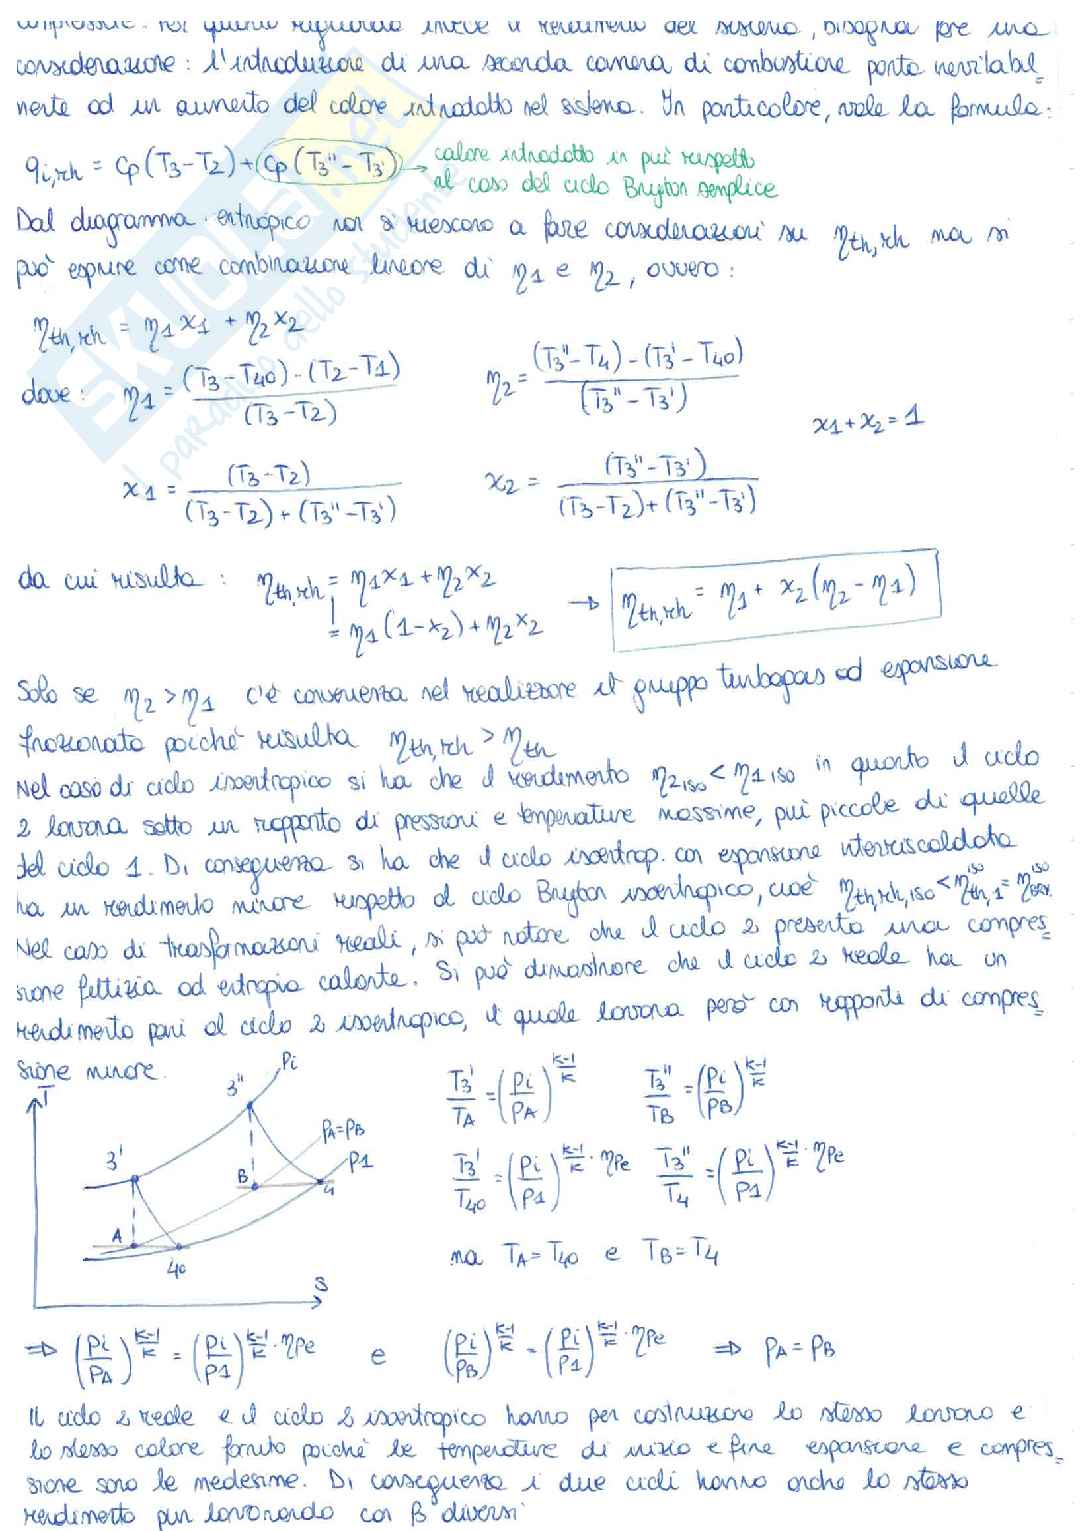 compressore. Per quanto riguarda invece il rendimento del sistema, bisogna fare una
considerazione: l'introduzione di una seconda camera di combustione porta inevitabil-
mente ad un aumento del calore introdotto nel sistema. In particolare, vale la formula:
qi,rh = Cp(T3-T2) + Cp(T3''-T3') → calore introdotto in più rispetto
al caso del ciclo Bryton semplice
Dal diagramma entropico non si riescono a fare considerazioni su ηth,rh ma si
può esprime come combinazione lineare di η1 e η2, ovvero:
ηth,rh = η1x1 + η2x2
dove: η1 = (T3-T40)-(T2-T1) / (T3-T2)   η2 = (T3''-T4)-(T3'-T40) / (T3''-T3')
x1+x2=1
x1 = (T3-T2) / (T3-T2)+(T3''-T3')   x2 = (T3''-T3') / (T3-T2)+(T3''-T3')
da cui risulta: ηth,rh = η1x1 + η2x2
= η1(1-x2) + η2x2 → ηth,rh = η1 + x2(η2-η1)
Solo se η2>η1 c'è convenienza nel realizzare il gruppo turbogas ad espansione
frazionata poiché risulta ηth,rh > ηth
Nel caso di ciclo isoentropico si ha che il rendimento η2iso < η1iso in quanto il ciclo
2 lavora sotto un rapporto di pressioni e temperature massime, più piccole di quelle
del ciclo 1. Di conseguenza si ha che il ciclo isoentrop. con espansione interriscaldata
ha un rendimento minore rispetto al ciclo Bryton isoentropico, cioè ηth,rh,iso < ηth,1 iso = η iso
Nel caso di trasformazioni reali, si può notare che il ciclo 2 presenta una compres-
sione fittizia ad entropia calante. Si può dimostrare che il ciclo 2 reale ha un
rendimento pari al ciclo 2 isoentropico, il quale lavora però con rapporti di compres-
sione minore.
T
3'
3''
Pi
PA=PB
P1
B
4
A
40
S
T3'/TA = (Pi/PA)^((k-1)/k)   T3''/TB = (Pi/PB)^((k-1)/k)
T3'/T40 = (Pi/P1)^((k-1)/k · ηPe)   T3''/T4 = (Pi/P1)^((k-1)/k · ηPe)
ma TA=T40 e TB=T4
⇒ (Pi/PA)^((k-1)/k) = (Pi/P1)^((k-1)/k · ηPe)   e   (Pi/PB)^((k-1)/k) = (Pi/P1)^((k-1)/k · ηPe) ⇒ PA=PB
Il ciclo 2 reale e il ciclo 2 isoentropico hanno per costruzione lo stesso lavoro e
lo stesso calore fornito poiché le temperature di inizio e fine espansione e compres-
sione sono le medesime. Di conseguenza i due cicli hanno anche lo stesso
rendimento pur lavorando con β diversi
SKUOLA.net
il paradiso dello studente